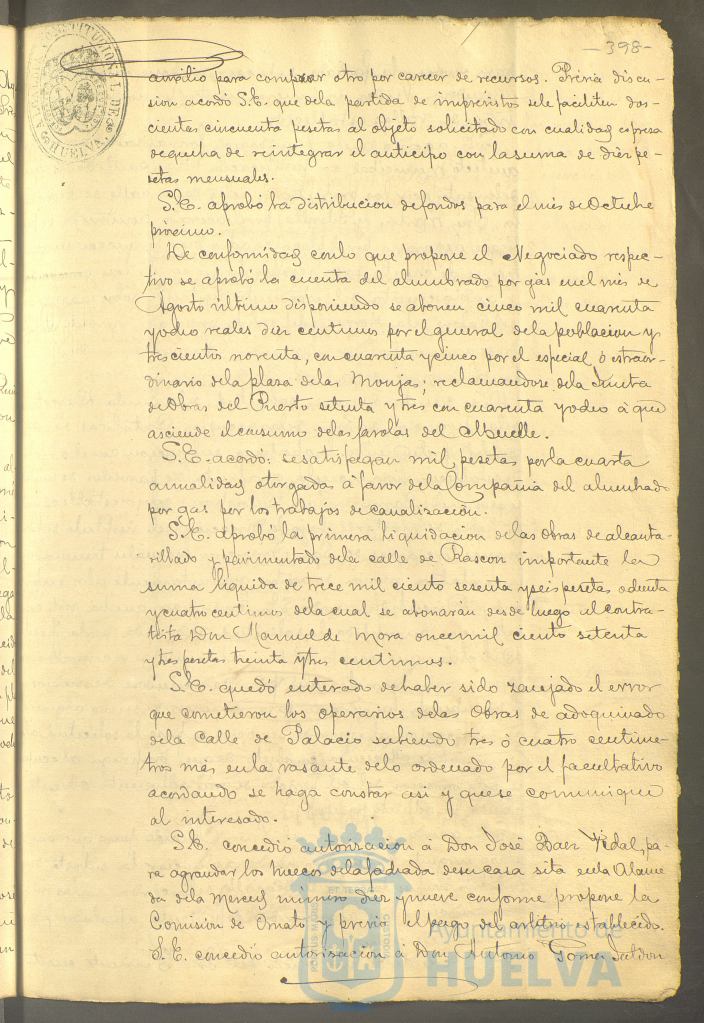 -398-
AYUNTAMIENTO CONSTITUCIONAL DE HUELVA
auxilio para comprar otro por carecer de recursos. Prévia discu-
sion acordó S.E. que de la partida de imprevistos se le faciliten dos-
cientas cincuenta pesetas al objeto solicitado con cualidad espresa
de que ha de reintegrar el anticipo con la suma de diez pe-
setas mensuales.
S.E. aprobó la distribucion de fondos para el mes de Octubre
próximo.
De conformidad con lo que propone el Negociado respec-
tivo se aprobó la cuenta del alumbrado por gas en el mes de
Agosto último disponiendo se abonen cinco mil cuarenta
y ocho reales diez centimos por el general de la poblacion y
trescientos noventa, con cuarenta y cinco por el especial ó estraor-
dinario de la plaza de las Monjas; reclamandose de la Junta
de Obras del Puerto setenta y tres con cuarenta y ocho á que
asciende el consumo de las farolas del Muelle.
S.E. acordó: se satisfagan mil pesetas por la cuarta
anualidad otorgada á favor de la Compañia del alumbrado
por gas por los trabajos de canalización.
S.E. aprobó la primera liquidacion de las Obras de alcanta-
rillado y pavimentado de la calle de Rascon importante la
suma liquida de trece mil ciento sesenta y seis pesetas ochenta
y cuatro centimos de la cual se abonarán desde luego al contra-
tista Don Manuel de Mora once mil ciento setenta
y tres pesetas treinta y tres centimos.
S.E. quedó enterado de haber sido zanjado el error
que cometieron los operarios de las Obras de adoquinado
de la Calle de Palacio subiendo tres ó cuatro centime-
tros más en la rasante de lo ordenado por el facultativo
acordando se haga constar asi y que se comunique
al interesado.
S.E. concedió autorizacion á Don José Baez Vidal, pa-
ra agrandar los huecos de la fachada de su casa sita en la Alame-
da de la Merced número diez y nueve conforme propone la
Comision de Ornato y previo el pago del arbitrio establecido.
S.E. concedió autorizacion á Don Antonio Gomez
Ayuntamiento de
HUELVA